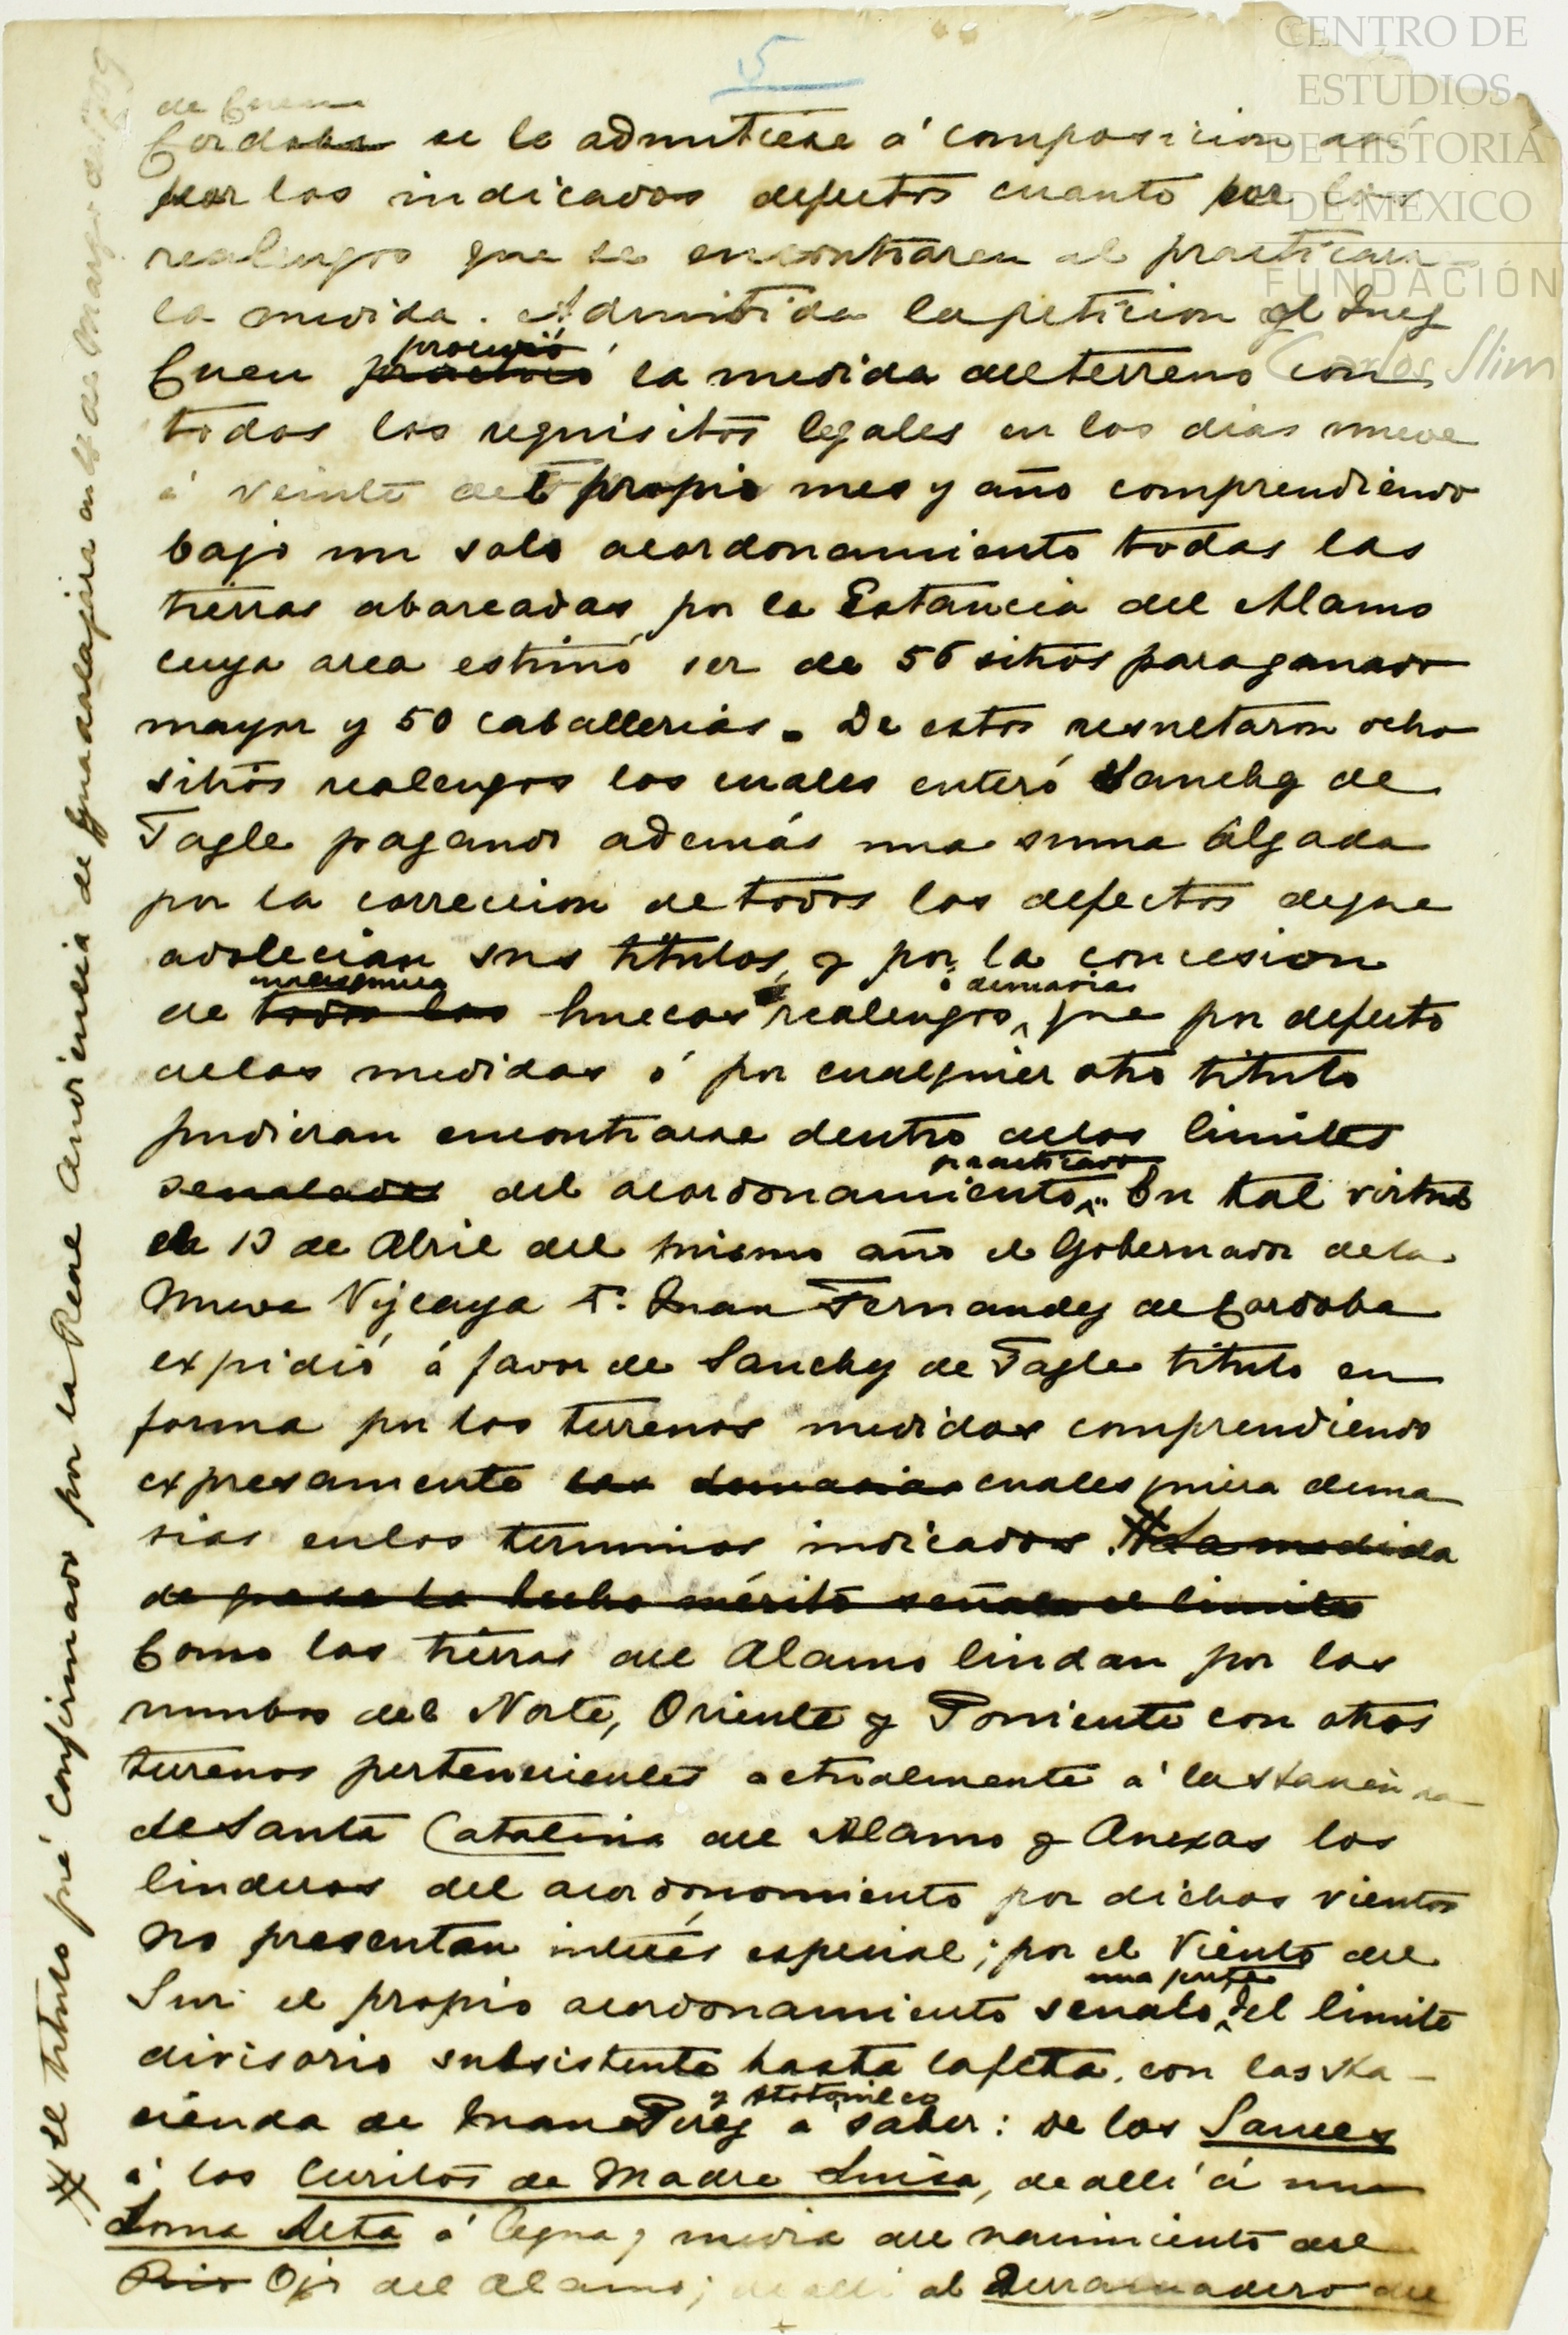 5
CENTRO DE
ESTUDIOS
DE HISTORIA
DE MÉXICO
FUNDACIÓN
Carlos Slim
de Cuen
Cordoba se le admitiese á composicion asi
por los indicados defectos cuanto por los
realengos que se encontraren al practicar
la medida. Admitida la peticion el Juez
procedió
Cuen practicó la medida del terreno con
todos los requisitos legales en los dias nueve
á veinte del propio mes y año comprendiendo
bajo un solo acordonamiento todas las
tierras abarcadas por la Estancia del Alamo
cuya area estimó ser de 56 sitios para ganado
mayor y 50 caballerias. De estos resultaron ocho
sitios realengos los cuales enteró Sanchez de
Tagle pagando además una suma alzada
por la correccion de todos los defectos de que
adolecian sus titulos, y por la concesion
ó demasias
de todos los huecos realengos, que por defecto
de las medidas ó por cualquier otro titulo
pudieran encontrarse dentro de los limites
practicado
senalados del acordonamiento. En tal virtud
el 13 de Abril del mismo año el Gobernador de la
Nueva Vizcaya D. Juan Fernandez de Cordoba
expidió á favor de Sanchez de Tagle titulo en
forma por los terrenos medidos comprendiendo
expresamente las demasias cualesquiera dema
sias en los terminos indicados. # La medida
de que se ha hecho mérito señala el limite
Como las tierras del Alamo lindan por los
rumbos del Norte, Oriente y Poniente con otros
terrenos pertenecientes actualmente á la Hacienda
de Santa Catalina del Alamo y Anexas los
linderos del acordonamiento por dichos vientos
no presentan interés especial; por el Viento del
una parte
Sur el propio acordonamiento senala del limite
divisorio subsistente hasta la fecha, con las Ha-
y Atotonilco
cienda de Juan Perez á saber: De los Sauces
á los Cerritos de Madre Luisa, de alli á una
Loma Alta á legua y media del nacimiento del
Rio Ojo del Alamo; de alli al Derramadero del
# El titulo fué confirmado por la Real Audiencia de Guadalajara en 13 de Marzo de